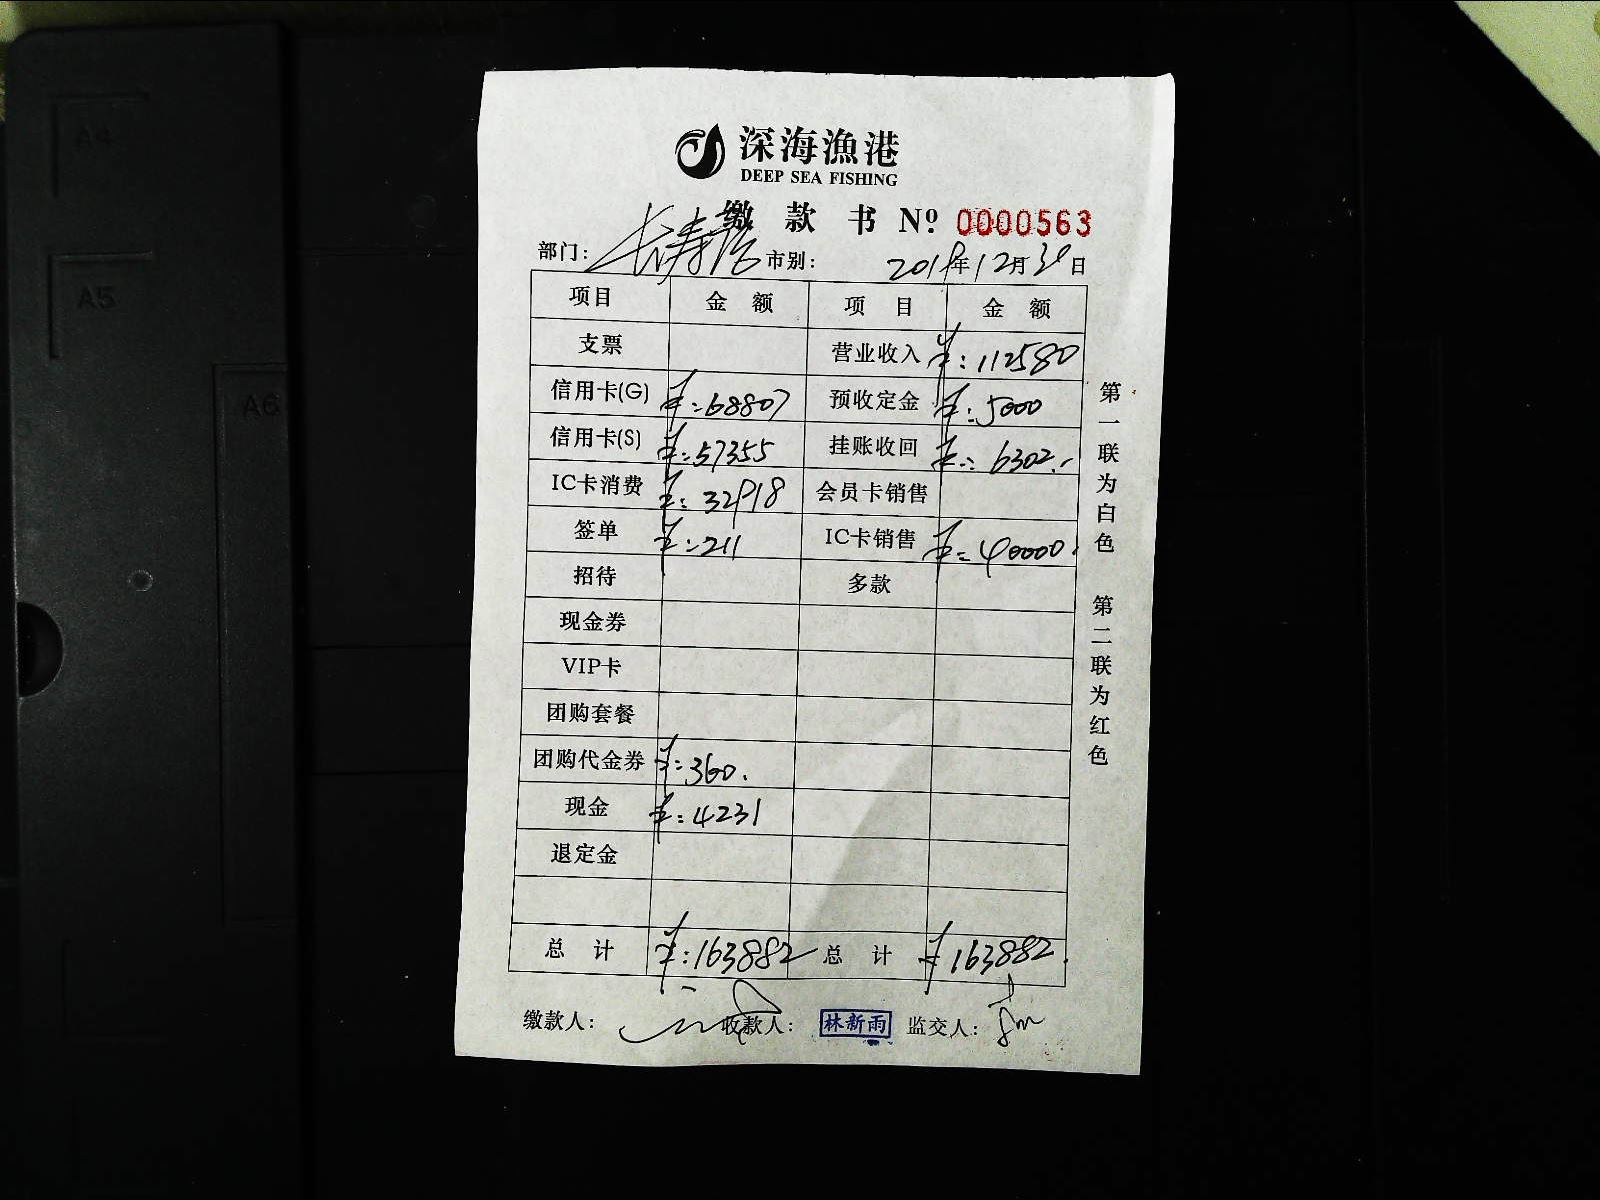 A4
A5
A6
深海漁港
DEEP SEA FISHING
缴款书 Nº 0000563
部门: 长寿路 市别: 2018年12月30日
项目 金额 项目 金额
支票 营业收入 ¥:112580
信用卡(G) ¥:68807 预收定金 ¥:5000
信用卡(S) ¥:57355 挂账收回 ¥:6302.-
IC卡消费 ¥:32918 会员卡销售
签单 ¥:211 IC卡销售 ¥:40000.
招待 多款
现金券
VIP卡
团购套餐
团购代金券 ¥:360.
现金 ¥:4231
退定金
总计 ¥:163882 总计 ¥163882.
缴款人: 收款人: 林新雨 监交人:
第一联为白色 第二联为红色